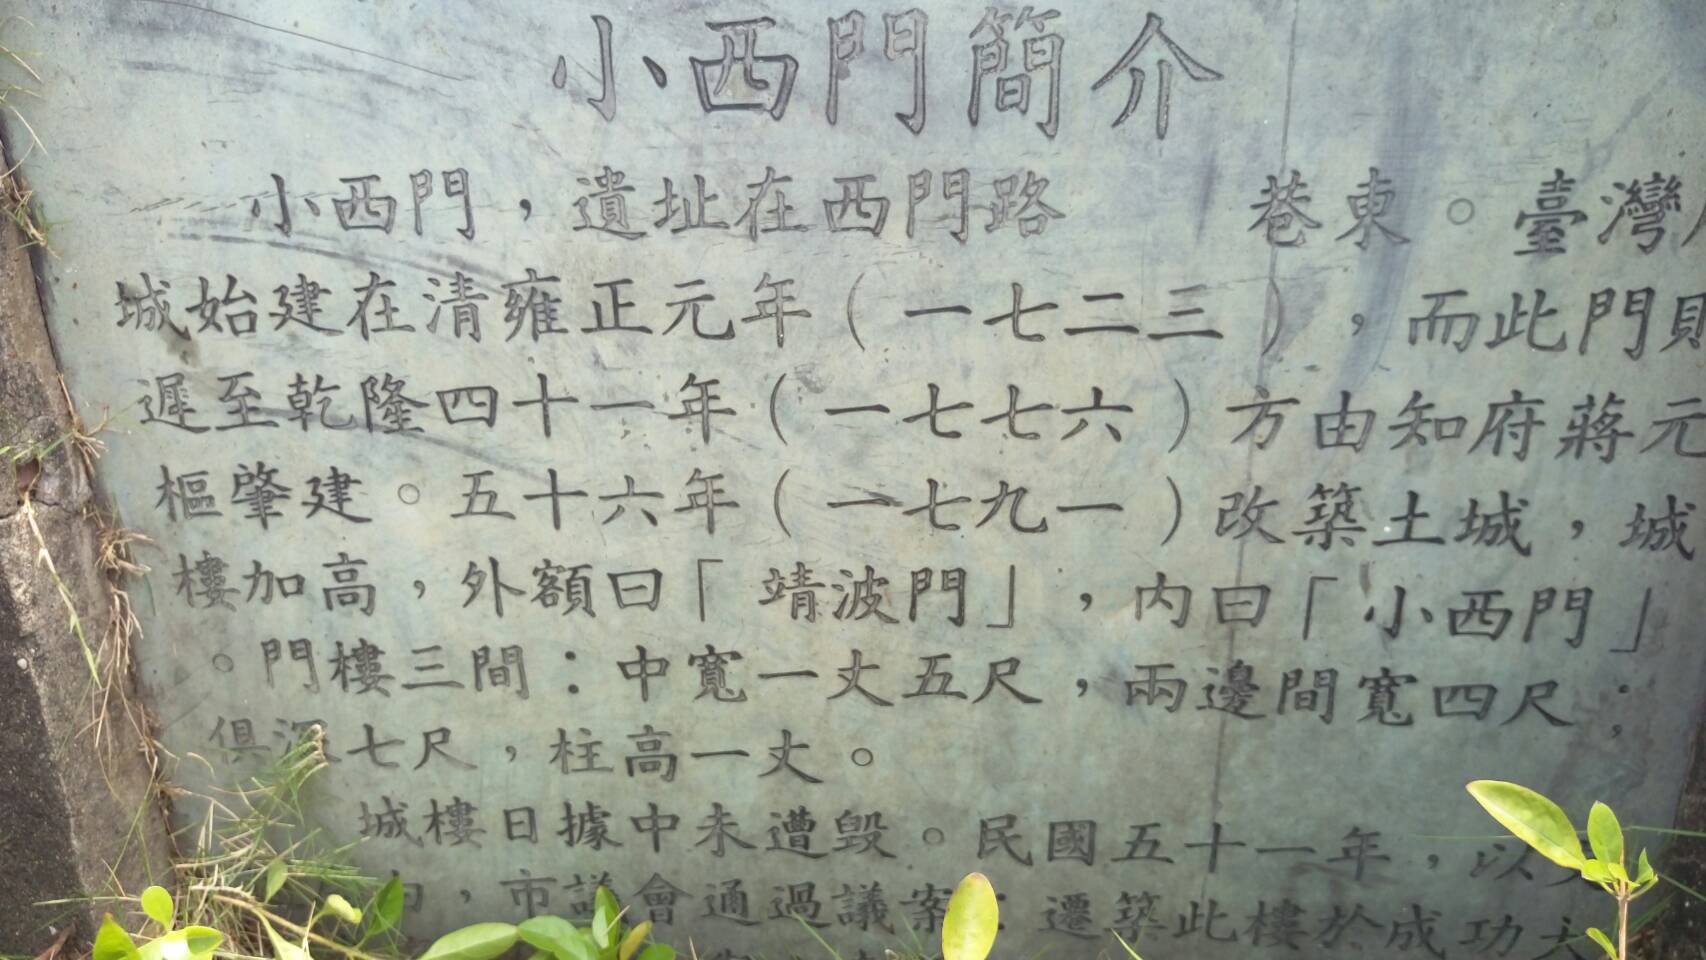 小西門簡介
小西門，遺址在西門路　　巷東。臺灣
城始建在清雍正元年（一七二三），而此門則
遲至乾隆四十一年（一七七六）方由知府蔣元
樞肇建。五十六年（一七九一）改築土城，城
樓加高，外額曰「靖波門」，內曰「小西門」
。門樓三間：中寬一丈五尺，兩邊間寬四尺；
俱深七尺，柱高一丈。
城樓日據中未遭毀。民國五十一年，以
，市議會通過議案：遷築此樓於成功大